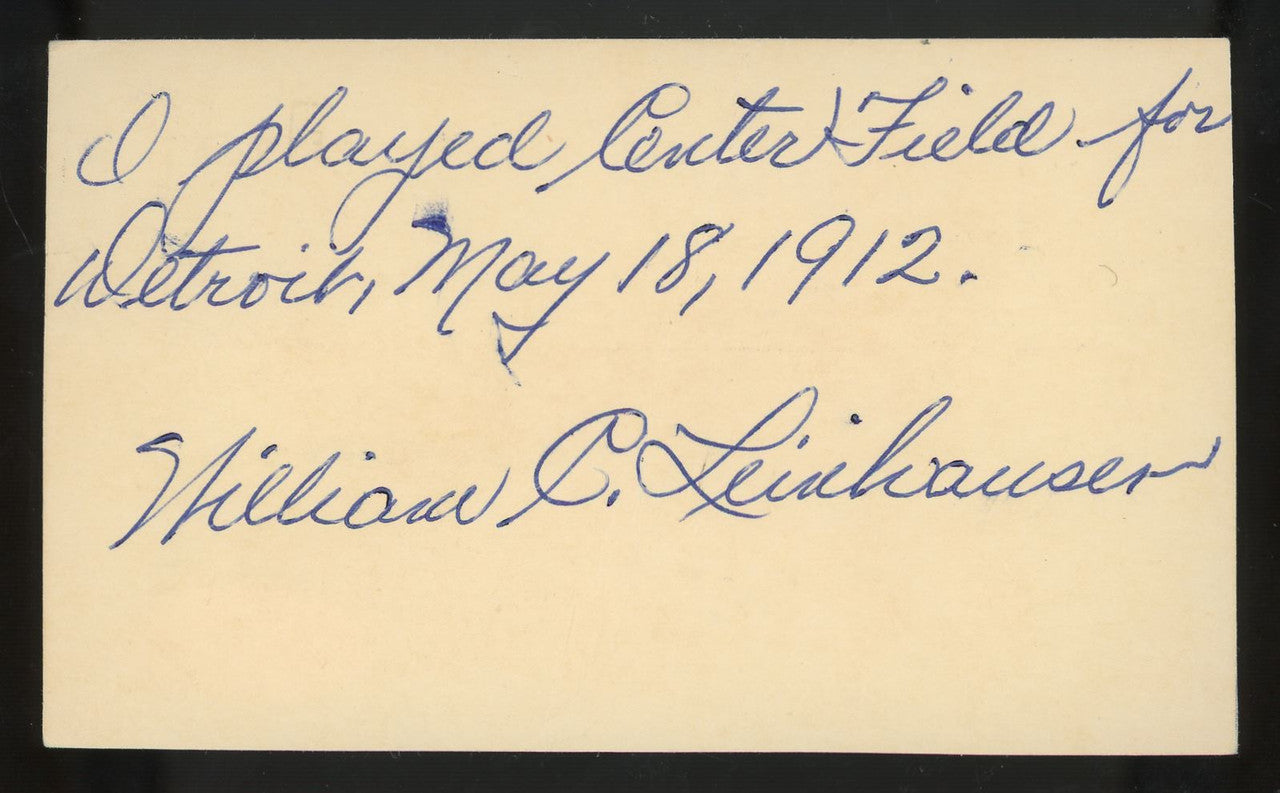 I played Center Field for
Detroit, May 18, 1912.
William C. Leinhauser